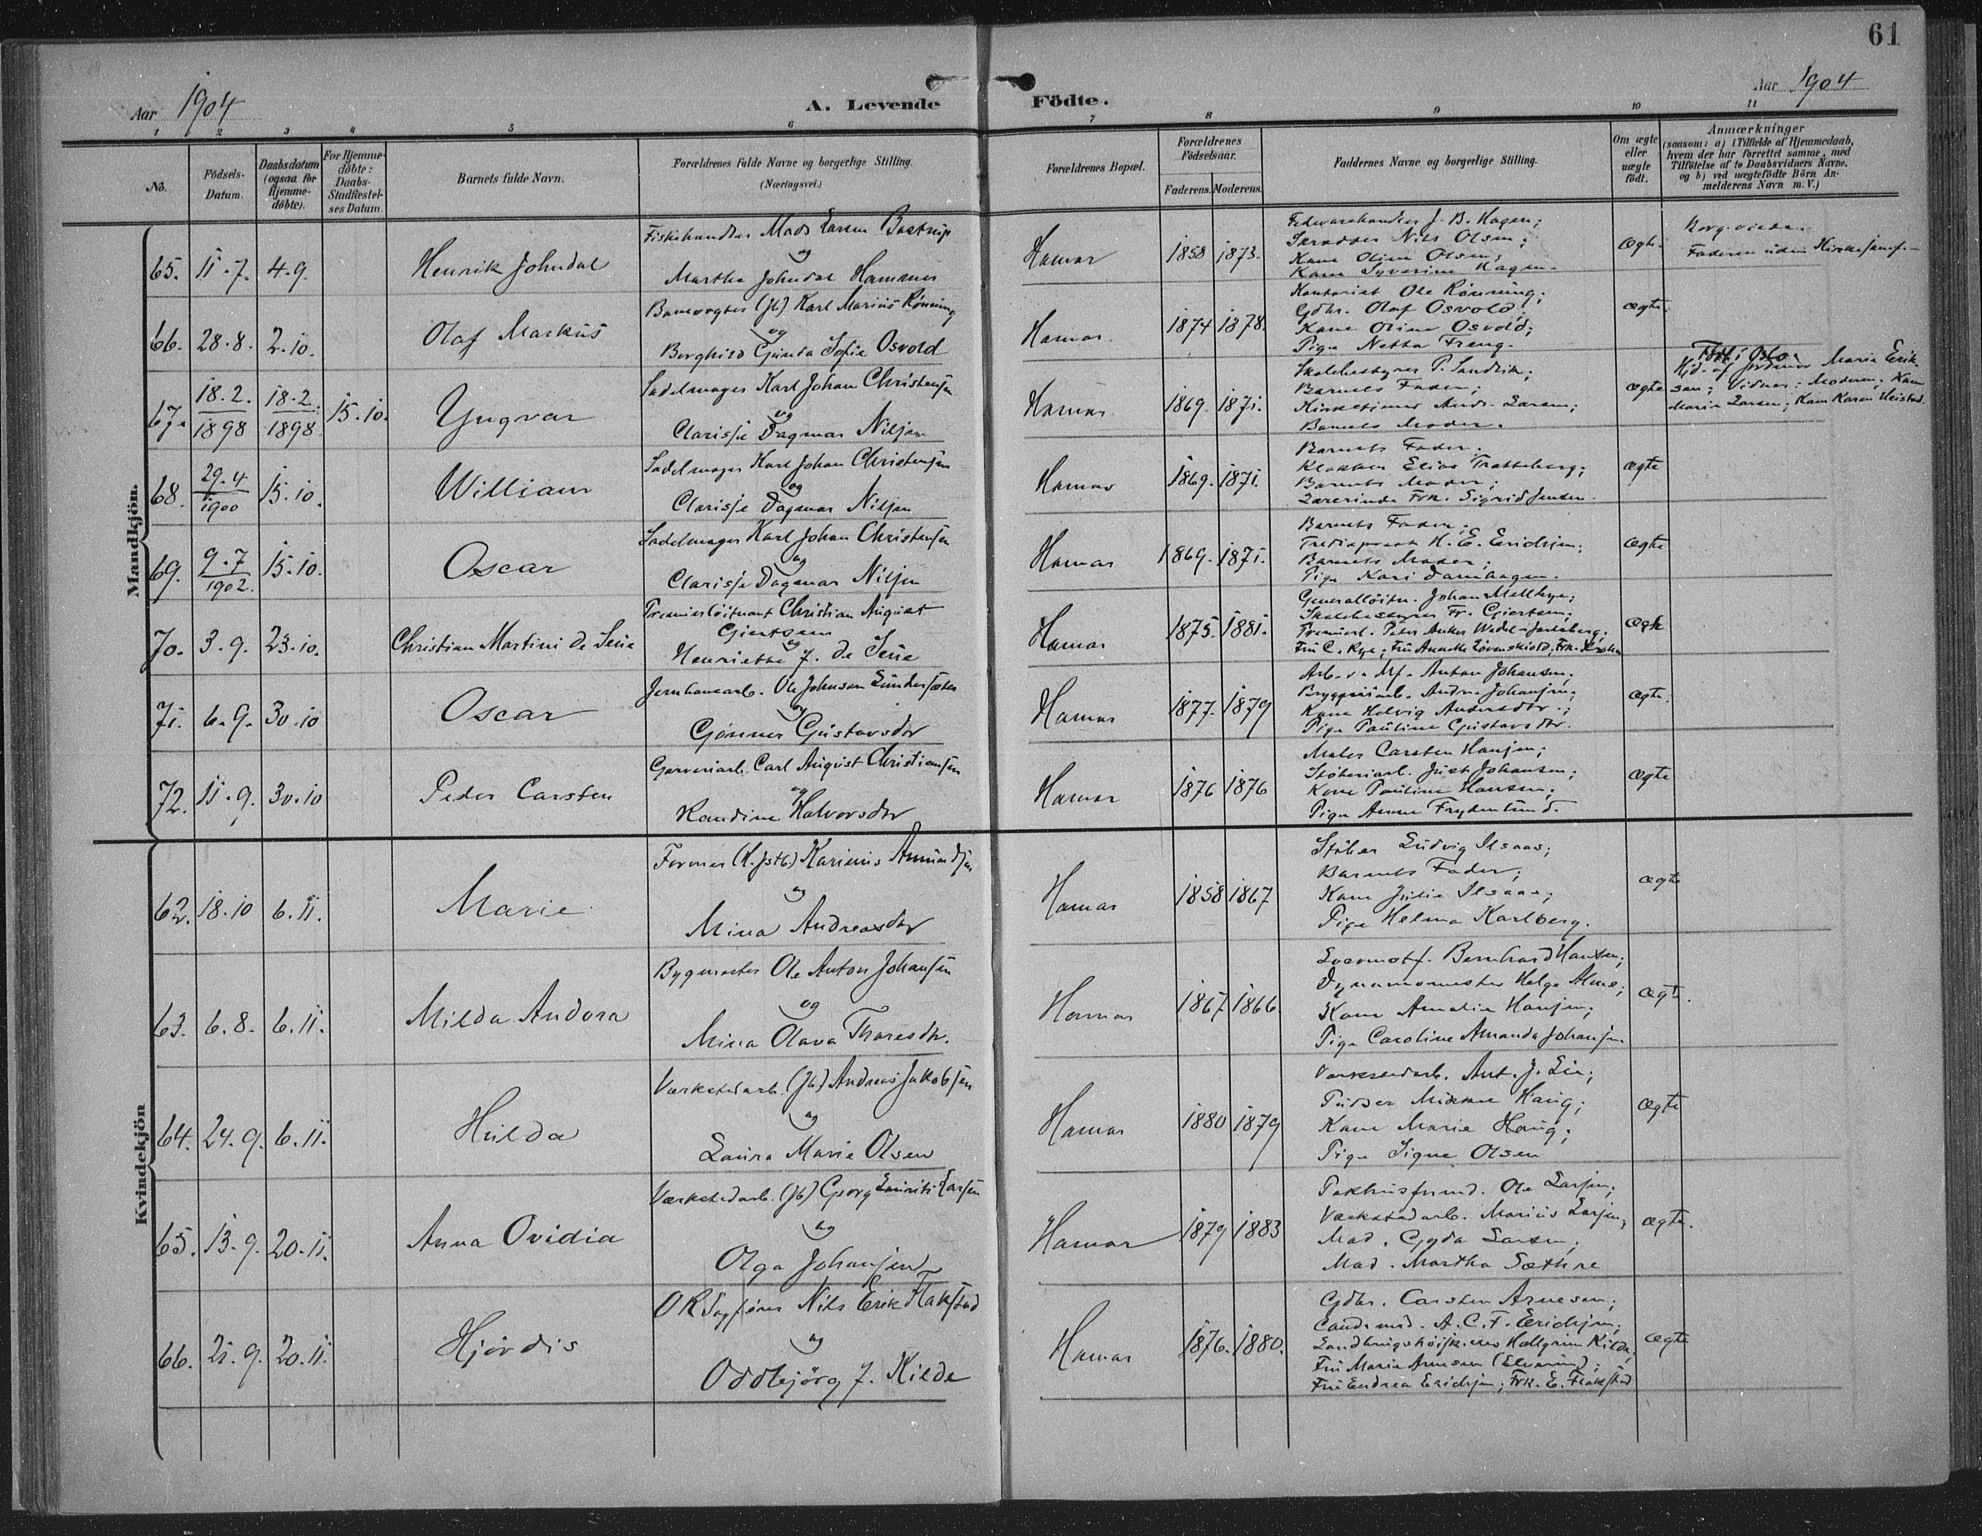 61
Aar 1904
A. Levende Födte.
Aar 1904
1 2 3 4 5 6 7 8 9 10 11
No.
Födsels-Datum.
Daabsdatum (ogsaa for Hjemme-döbte).
For Hjemme-döbte: Daabs-Stadfæstel-ses Datum.
Barnets fulde Navn.
Forældrenes fulde Navne og borgerlige Stilling.
(Næringsvei.)
Forældrenes Bopæl.
Forældrenes Födselsaar.
Faderens. Moderens.
Faddernes Navne og borgerlige Stilling.
Om ægte eller uægte födt.
Anmærkninger
(saasom: a) i Tilfælde af Hjemmedaab,
hvem der har forrettet samme, med
Tilföielse af to Daabsvidners Navne,
og b) ved uægtefödte Börn An-
melderens Navn m. V.)
Mandkjön.
Fiskehandler Mads Larsen Bastrup
65. 11.7. 4.9. Henrik Johndal
og
Martha Johndal Hammer
Hamar 1858 1873.
Fedevarehandler J. B. Hagen;
Nils Olsen;
Kone Oline Olsen;
Kone Syverine Hagen.
ægte.
Borg. vielse.
Faderen uden Kirkesamf.
Banevogter (Jb) Karl Marius Rönning
66. 28.8. 2.10. Olaf Markus
og
Borghild Gunda Sofie Osvold
Hamar. 1874 1878.
Kontorist Ole Rönning;
Gdbr. Olaf Osvold;
Kone Oline Osvold;
Pige Netta Freng.
ægte
Sadelmager Karl Johan Christensen
67. 18.2. 1898 18.2. 1898. 15.10. Yngvar
og
Clarisse Dagmar Nilsen
Hamar 1869. 1871.
Skolebestyrer P. Sandvik;
Barnets Fader;
Kirketjener Andr. Larsen;
Barnets Moder.
ægte
Födt i Oslo.
Hjd. af Jordmor Marie Erik-
sen; Vidner: Moderen, Kone
Marie Larsen; Kone Karen Heistad.
Sadelmager Karl Johan Christensen
68. 29.4 1900 15.10. William
og
Clarisse Dagmar Nilsen
Hamar 1869. 1871.
Barnets Fader;
Klokker Elias Tratteberg;
Barnets Moder;
Lærerinde Frk. Sigrid Jensen.
ægte
Sadelmager Karl Johan Christensen
69. 9.7 1902. 15.10. Oscar
og
Clarisse Dagmar Nilsen
Hamar 1869. 1871.
Barnets Fader;
Trediaprest K. E. Erichsen;
Barnets Moder;
Pige Kari Damhagen.
ægte
Premierlöitnant Christian August
Gjertsen
70. 3.9. 23.10. Christian Martini de Seue
og
Henriette J. de Seue
Hamar 1875. 1881.
Generallöitn. Johan Mellbye;
Skolebestyrer Fr. Gjertsen;
Premierl. Peter Anker Wedel-Jarlsberg;
Fru C. Rye; Fru Annette Lövenskiold; Frk. Krohn
ægte
Jernbanearb. Ole Johnsen Sundersæter
71. 6.9. 30.10 Oscar
og
Gunner Gustavsdtr
Hamar 1877. 1879
Arb. v. Mf. Anton Johansen;
Bryggeriarb. Andr. Johansen;
Kone Helvig Andersdtr.;
Pige Pauline Gustavsdtr.
ægte.
Garveriarb. Carl August Christiansen
72. 11.9. 30.10 Peder Carsten
og
Randine Halvorsdtr
Hamar 1876 1876
Maler Carsten Hansen;
Stöberiarb. Just Johansen;
Kone Pauline Hansen;
Pige Anne Frydenlund.
ægte
Kvindekjön
Former (K. Jstb.) Karinius Amundsen
62. 18.10 6.11. Marie
og
Mina Andreasdtr
Hamar 1858 1867
Stöber Ludvig Ilsaas;
Barnets Fader;
Kone Julie Ilsaas;
Pige Helma Karlberg.
ægte
Bygmester Ole Anton Johansen
63. 6.8. 6.11. Milda Andora
og
Mina Olava Tharesdtr.
Hamar 1867 1866
Bernhard Hansen;
Dynamomester Helge Alme;
Kone Amalie Hansen;
Pige Caroline Amanda Johansen
ægt.
Værkstedarb. (Jb) Andreas Jakobsen
64. 24.9. 6.11. Hilda
og
Laura Marie Olsen
Hamar 1880 1879
Værkstedarb. Ant. J. Lie;
Pudser Mikkel Haug;
Kone Marie Haug;
Pige Signe Olsen
ægte
Værkstedarb. (Jb) Georg Laurits Larsen
65. 13.9. 20.11. Anna Ovidia
og
Olga Johansen
Hamar 1879 1883
Pakhusformd. Ole Larsen;
Værkstedarb. Marius Larsen;
Mad. Gyda Larsen;
Mad. Martha Sæthre
ægte.
O R Sagförer Nils Erik Flakstad
66. 21.9. 20.11. Hjördis
og
Oddbjörg J. Kilde
Hamar 1876. 1880.
Gdbr. Carsten Arnesen;
Cand. med. A. C. F. Erichsen;
Hallgrim Kilde;
Fru Marie Arnesen (Elverum);
Fru Endrea Erichsen; Frk. E. Flakstad
ægte